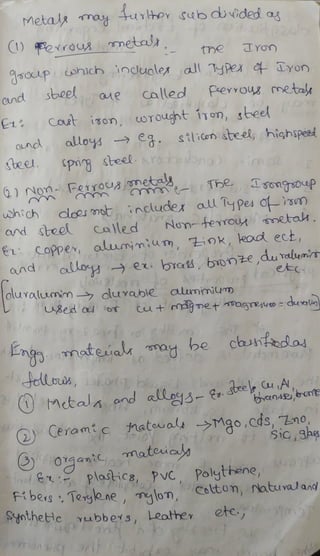 Metals may further sub divided as
(1) Ferrous metals :- The Iron
group which includes all Types of Iron
and steel are called Ferrous metals
Ex: Cast iron, wrought iron, steel
and alloys → eg. silicon steel, high speed
steel. spring steel.
2) Non-Ferrous metals :- The Iron group
which does not includes all Types of iron
and steel called Non-ferrous metals.
Ex: copper, aluminium, Zink, lead ect,
and alloys → ex. brass, bronze, duralumin
etc.
[duralumin → durable aluminium
used as or cu + magnesium = duralumin]
Engg materials may be classified as
follows,
① Metals and alloys - Ex. steels, Cu, Al,
② Ceramic Materials → Mgo, cds, Zno,
Sic, glass
③ Organic materials
Ex:- plastics, PVC, Polythene,
Fibers: Terylene, nylon, Cotton, Natural and
Synthetic rubbers, Leather etc;